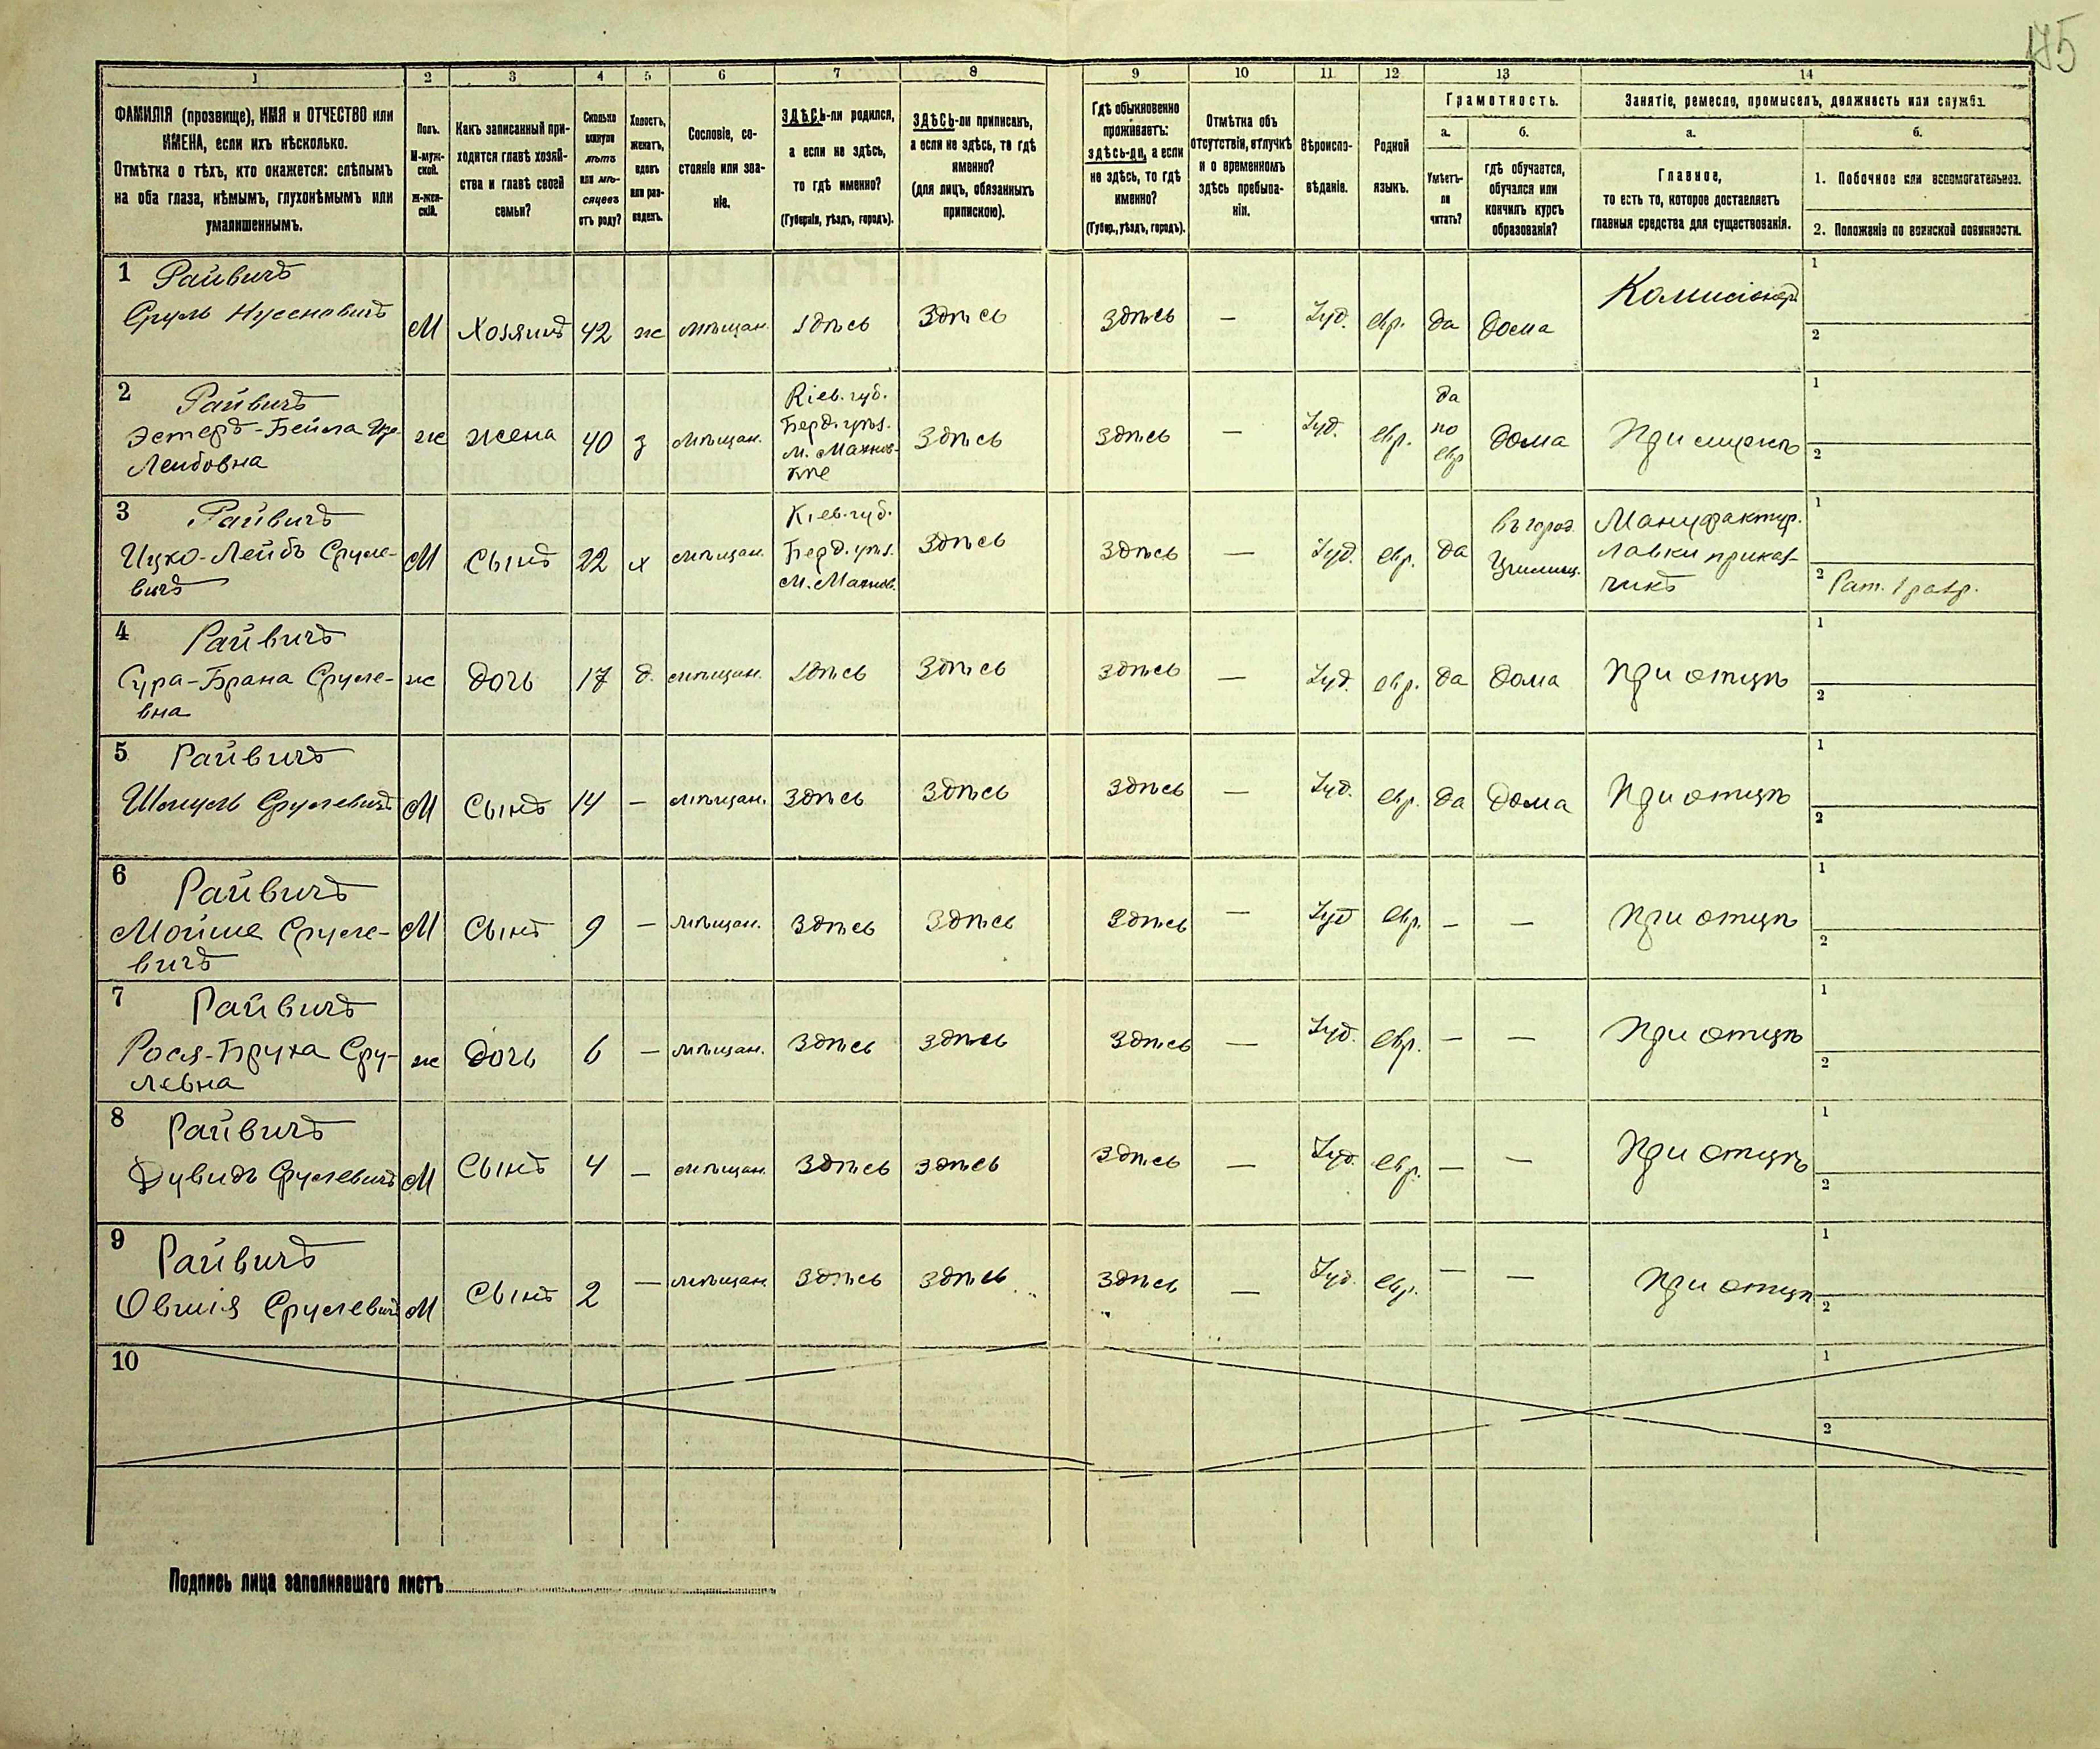 175
1
2
3
4
5
6
7
8
9
10
11
12
13
14
ФАМИЛІЯ (прозвище), ИМЯ и ОТЧЕСТВО или
ИМЕНА, если ихъ нѣсколько.
Отмѣтка о тѣхъ, кто окажется: слѣпымъ
на оба глаза, нѣмымъ, глухонѣмымъ или
умалишеннымъ.
Полъ.
М-муж-
ской.
Ж-жен-
скій.
Какъ записанный при-
ходится главѣ хозяй-
ства и главѣ своей
семьи?
Сколько
минуло
лѣтъ
или мѣ-
сяцевъ
отъ роду?
Холостъ,
женатъ,
вдовъ
или раз-
веденъ.
Сословіе, со-
стояніе или зва-
ніе.
ЗДѢСЬ-ли родился,
а если не здѣсь,
то гдѣ именно?
(Губернія, уѣздъ, городъ).
ЗДѢСЬ-ли приписанъ,
а если не здѣсь, то гдѣ
именно?
(для лицъ, обязанныхъ
припискою).
Гдѣ обыкновенно
проживаетъ:
здѣсь-ли, а если
не здѣсь, то гдѣ
именно?
(Губер., уѣздъ, городъ).
Отмѣтка объ
отсутствіи, отлучкѣ
и о временномъ
здѣсь пребыва-
ніи.
Вѣроиспо-
вѣданіе.
Родной
языкъ.
Грамотность.
а.
б.
Умѣетъ-
ли
читать?
гдѣ обучается,
обучался или
кончилъ курсъ
образованія?
Занятіе, ремесло, промыселъ, должность или служба.
а.
б.
Главное,
то есть то, которое доставляетъ
главныя средства для существованія.
1. Побочное или вспомогательное.
2. Положеніе по воинской повинности.
1 Райвичъ
Сруль Нусеновичъ
М Хозяинъ 42 ж мѣщан. здѣсь здѣсь здѣсь — Іуд. евр. да дома Комисіонер
1
2
2 Райвичъ
Эстеръ-Бейла
Лейбовна
ж жена 40 з мѣщан.
Кіев. губ.
Берд. уѣз.
м. Махнов-
кѣ
здѣсь здѣсь — Іуд. евр.
да
по
евр
дома При мужѣ
1
2
3 Райвичъ
Ицко-Лейбъ Сруле-
вичъ
М Сынъ 22 х мѣщан.
Кіев. губ.
Берд. уѣз.
м. Махнов.
здѣсь здѣсь — Іуд. евр. да
въ город.
Училищ.
Мануфактур.
лавки приказ-
чикъ
1
2 Рат. 1 разр.
4 Райвичъ
Сура-Брана Сруле-
вна
ж дочь 17 д. мѣщан. здѣсь здѣсь здѣсь — Іуд. евр. да дома при отцѣ
1
2
5 Райвичъ
Шмуль Срулевичъ
М Сынъ 14 — мѣщан. здѣсь здѣсь здѣсь — Іуд. евр. да дома при отцѣ
1
2
6 Райвичъ
Мойше Сруле-
вичъ
М Сынъ 9 — мѣщан. здѣсь здѣсь здѣсь — Іуд евр. — — при отцѣ
1
2
7 Райвичъ
Рося-Бруха Сру-
левна
ж дочь 6 — мѣщан. здѣсь здѣсь здѣсь — Іуд. евр. — — при отцѣ
1
2
8 Райвичъ
Дувидъ Срулевичъ
М Сынъ 4 — мѣщан. здѣсь здѣсь здѣсь — Іуд. евр. — — при отцѣ
1
2
9 Райвичъ
Овшія Срулевичъ
М Сынъ 2 — мѣщан. здѣсь здѣсь здѣсь — Іуд. евр. — — при отцѣ
1
2
10
1
2
Подпись лица заполнявшаго листъ